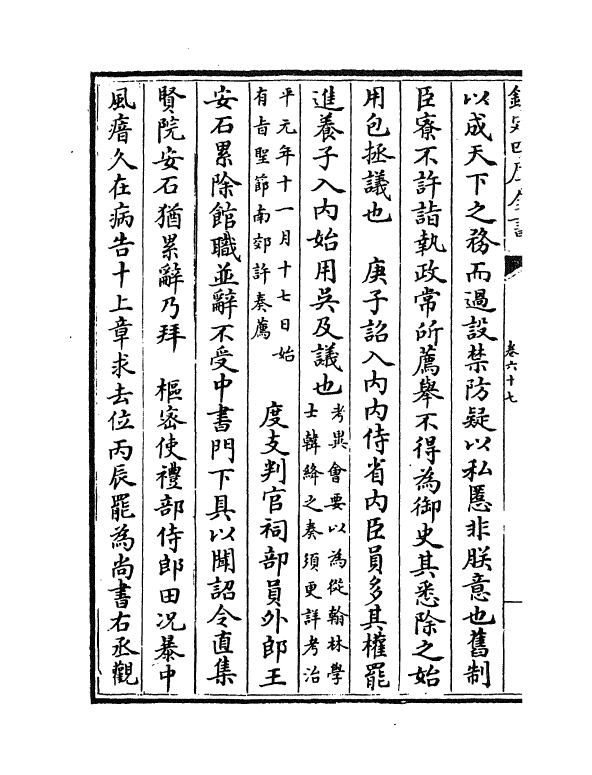 欽定四庫全書
卷六十七
以成天下之務而過設禁防疑以私慝非朕意也舊制
臣寮不許詣執政常所薦舉不得為御史其悉除之始
用包拯議也　庚子詔入內內侍省內臣員多其權罷
進養子入內始用吳及議也考異會要以為從翰林學
士韓絳之奏須更詳考治
平元年十一月十七日始
有旨聖節南郊許奏薦　度支判官祠部員外郎王
安石累除館職並辭不受中書門下具以聞詔令直集
賢院安石猶累辭乃拜　樞密使禮部侍郎田況暴中
風瘖久在病告十上章求去位丙辰罷為尚書右丞觀